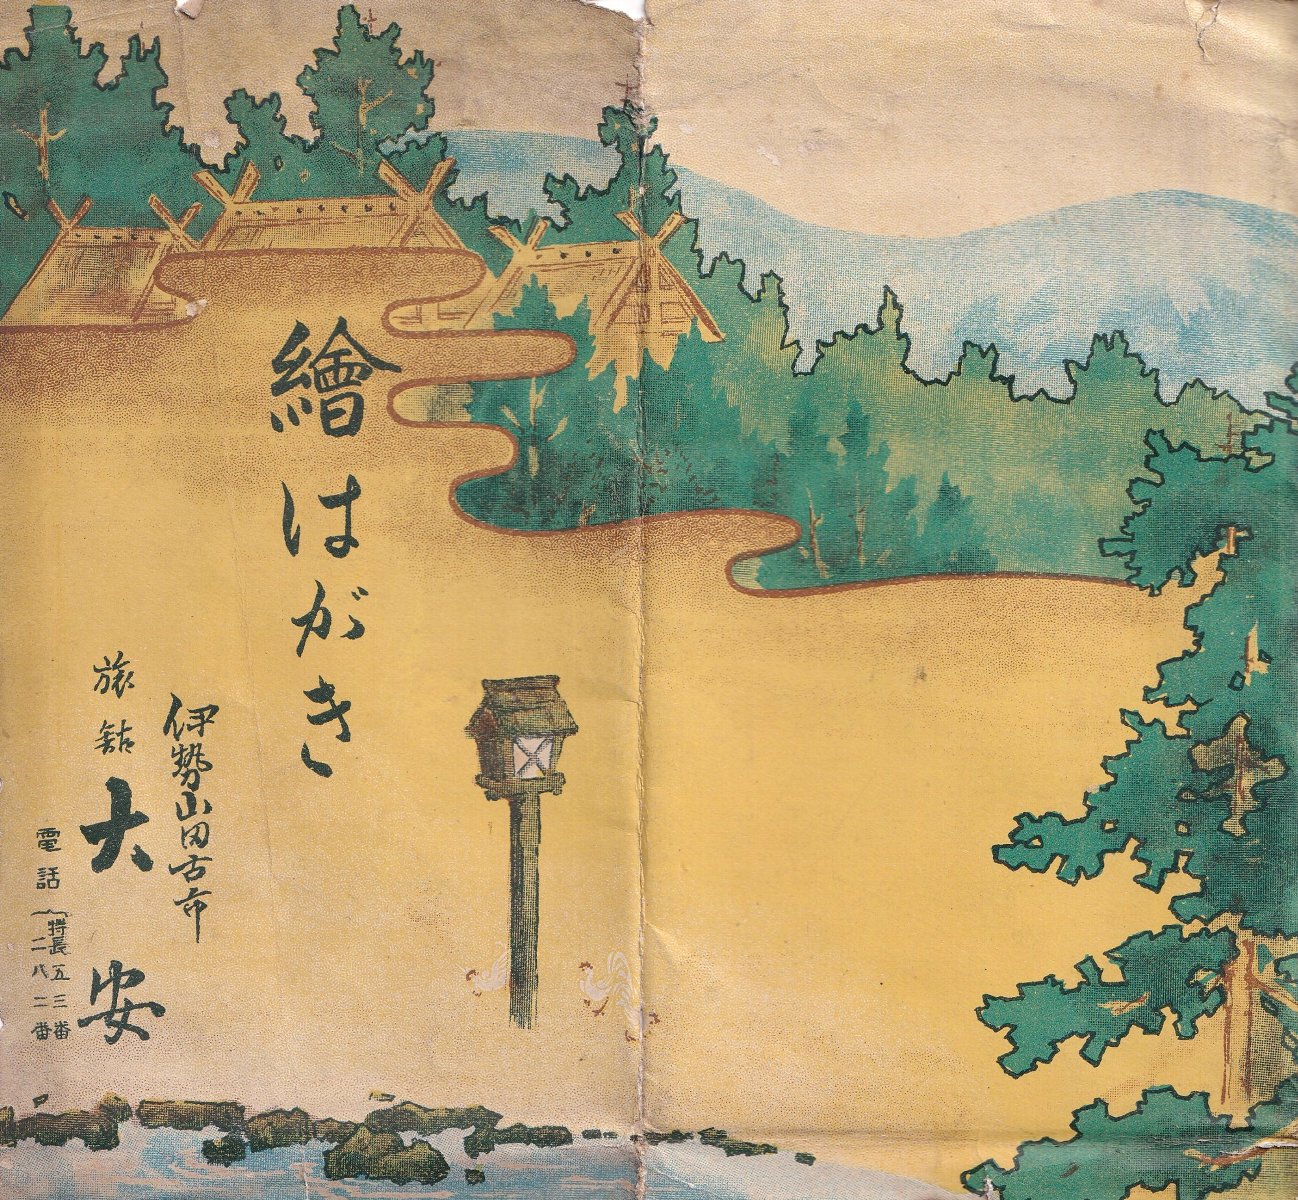 繪はがき
伊勢山田古市
旅舘 大安
電話{特長五三番
二八二番